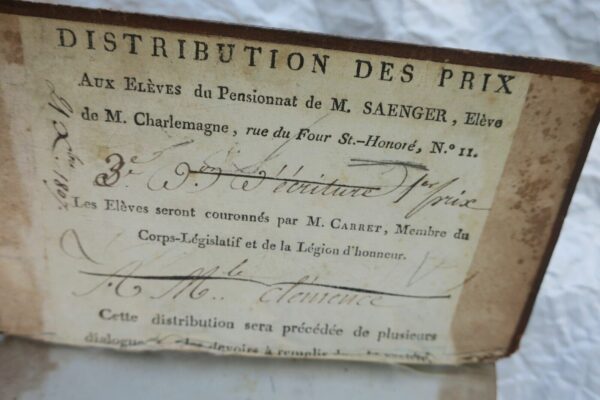 DISTRIBUTION DES PRIX
AUX ELÈVES du Pensionnat de M. SAENGER, Elève
de M. Charlemagne, rue du Four St.-Honoré, N.° 11.
3.e d'écriture 1er prix
Les Elèves seront couronnés par M. CARRET, Membre du
Corps-Législatif et de la Légion d'honneur.
A M.lle clémence
Cette distribution sera précédée de plusieurs
dialogue devoirs à remplir dans la société